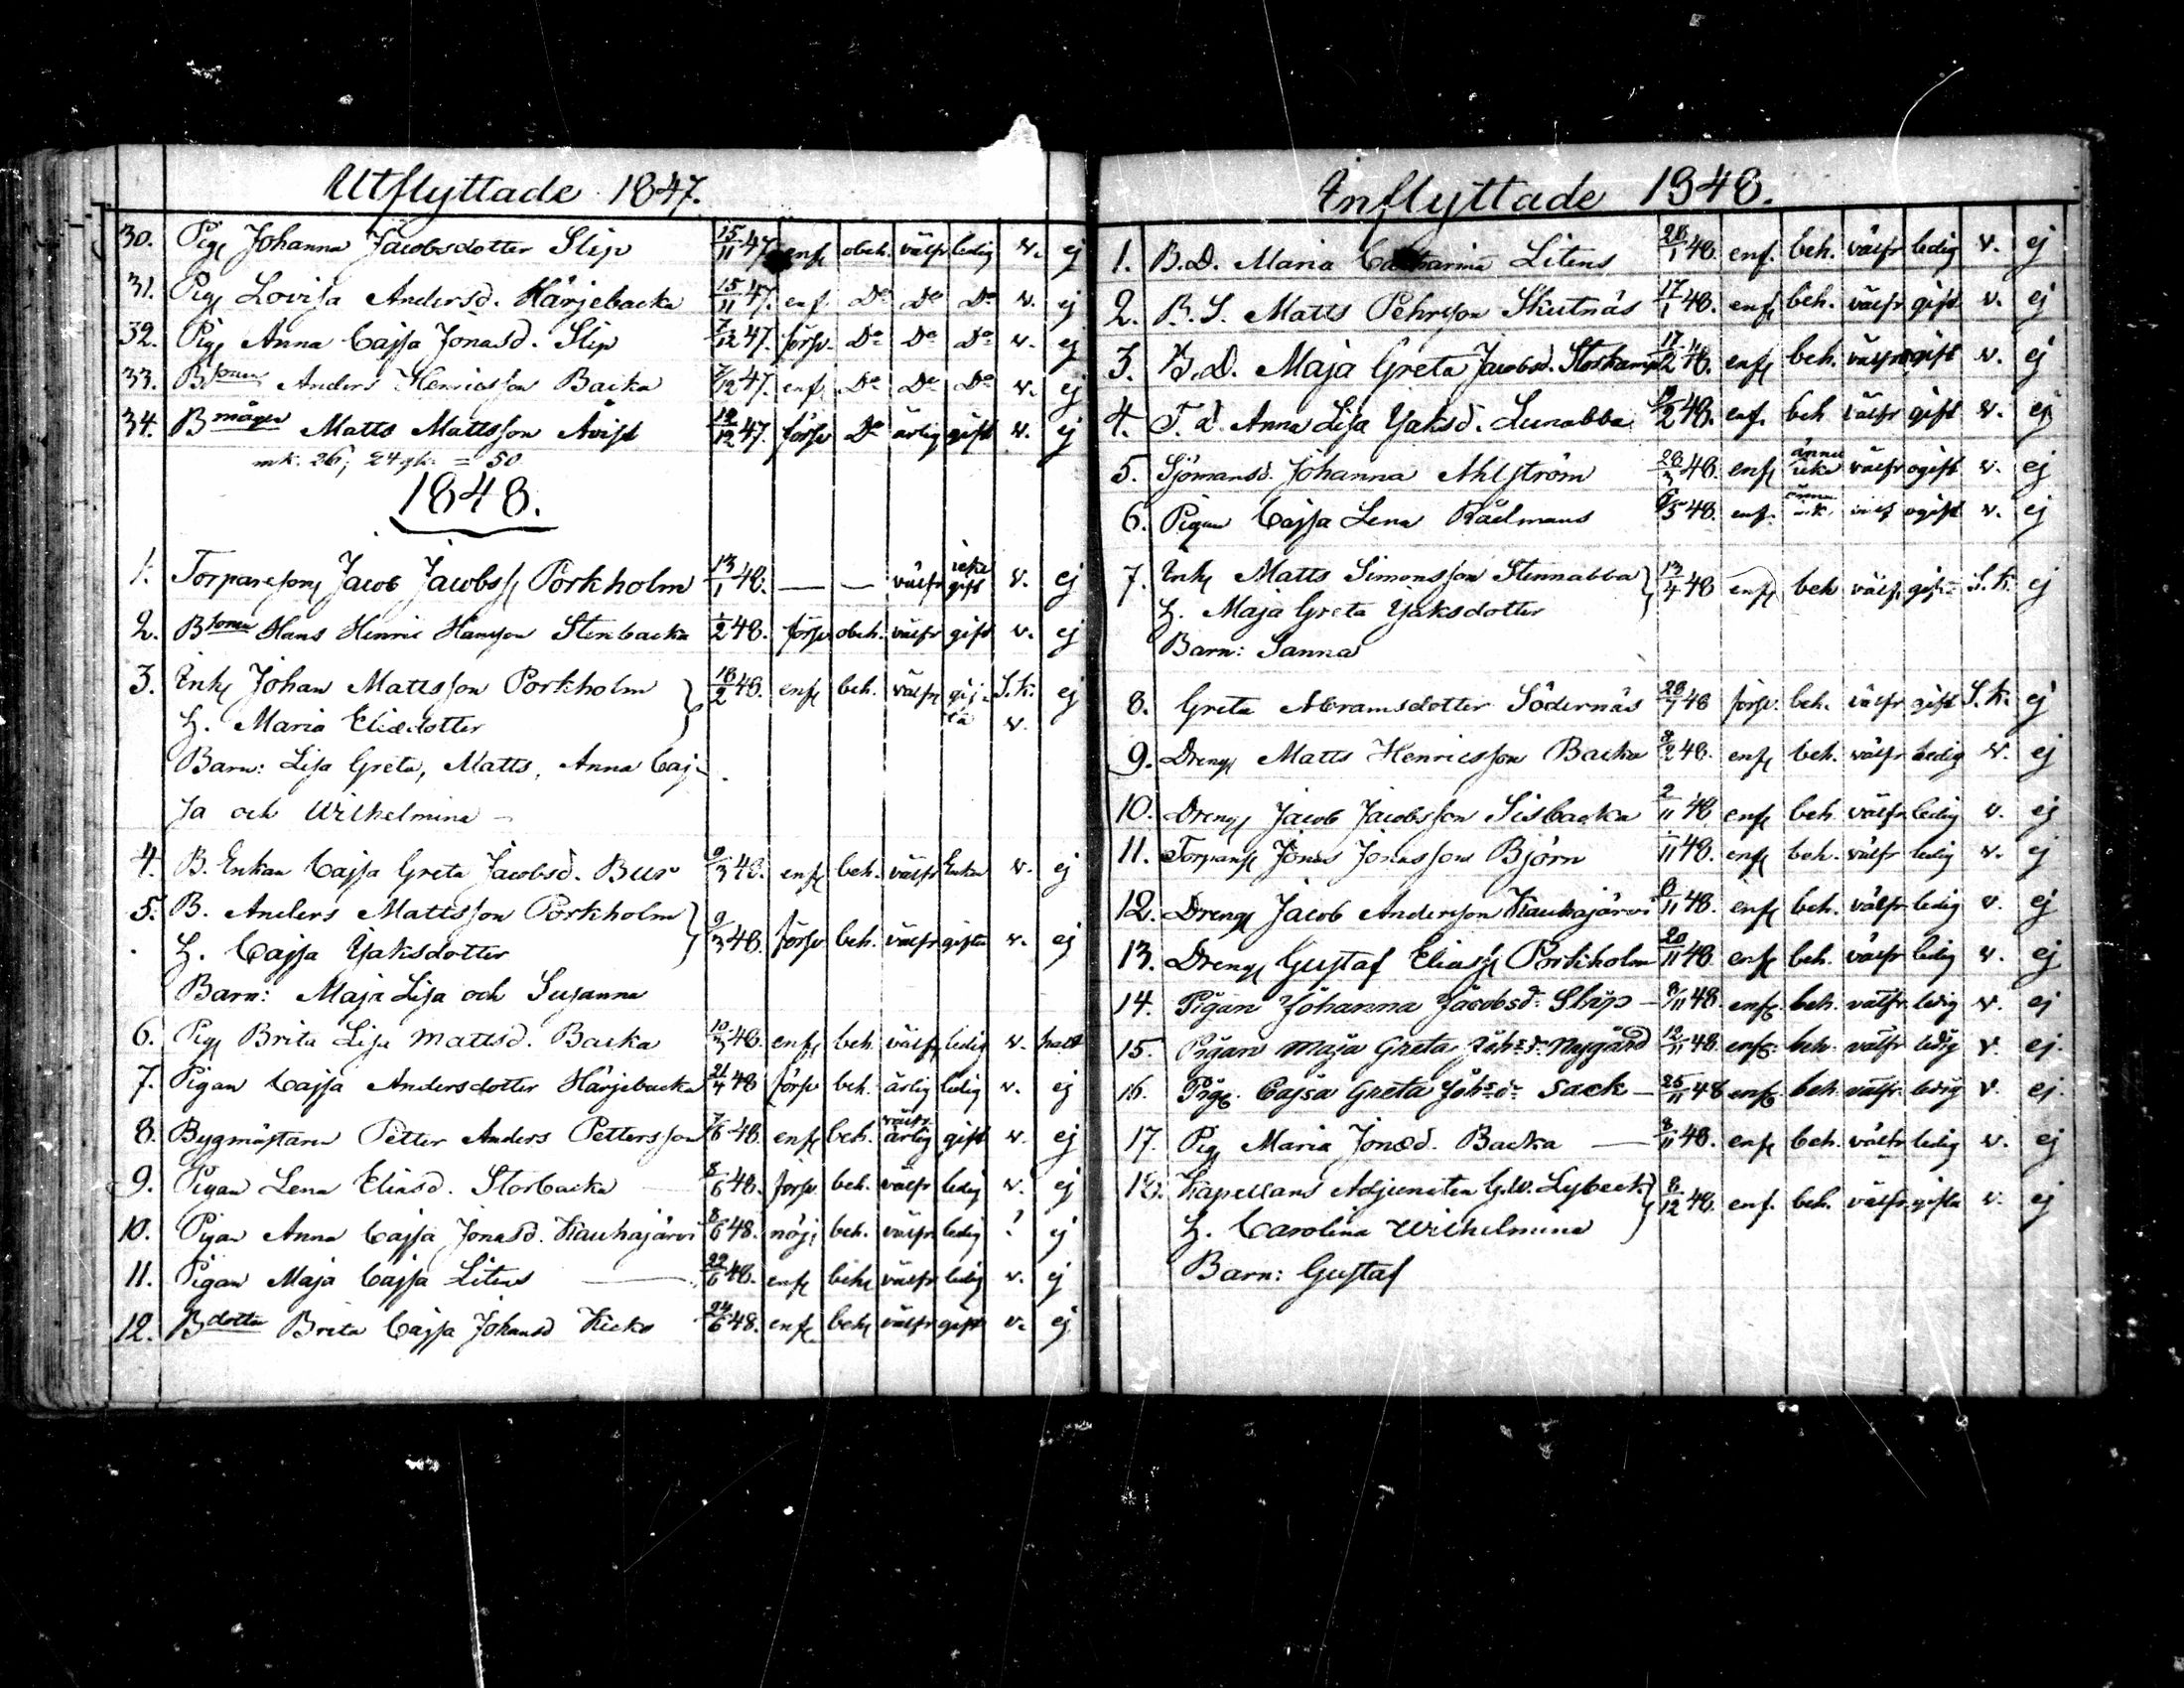 Utflyttade 1847.
30. Pig. Johanna Jacobsdotter Slip 15/11 47. enf. obeh. välfr ledig v. ej
31. Pig. Lovisa Andersd. Härjebacka 15/11 47. enf. Do Do Do v. ej
32. Pig. Anna Cajsa Jonasd. Slip 7/12 47. försv. Do Do Do v. ej
33. Bsonen Anders Henricsson Backa 7/12 47. enf. Do Do Do v. ej
34. Bmågen Matts Mattsson Åvist 12/12 47. försv Do ärlig gift v. ej
mk. 26; 24 = 50
1848.
1. Torpareson Jacob Jacobss. Porkholm 13/1 48. — — välfr icke gift v. ej
2. Bsonen Hans Henric Hansson Stenbacka 1/2 48. försv obeh. välfr gift v. ej
3. Inh. Johan Mattsson Porkholm 18/2 48. enf. beh. välfr S.k. ej
H. Maria Eliædotter v.
Barn: Lisa Greta, Matts, Anna Caj-
sa och Wilhelmina —
4. B. Enkan Cajsa Greta Jacobsd. Bur 9/3 48. enf. beh. välfr Enka v. ej
5. B. Anders Mattsson Porkholm 9/3 48. försv beh. välfr gifta v. ej
H. Cajsa Ysaksdotter
Barn: Maja Lisa och Susanna
6. Pig. Brita Lisa Mattsd. Backa 10/3 48. enf. beh. välfr ledig v.
7. Pigan Cajsa Andersdotter Härjebacka 21/4 48 försv beh. ärlig ledig v. ej
8. Bygmästaren Petter Anders Pettersson 7/6 48. enf. beh. välfr ärlig gift v. ej
9. Pigan Lena Eliasd. Storbacka 8/6 48. försv beh. välfr ledig v. ej
10. Pigan Anna Cajsa Jonasd. Kauhajärvi 8/6 48. nöj. beh. välfr ledig ? ej
11. Pigan Maja Cajsa Litens — 22/6 48. enf. beh. välfr ledig v. ej
12. Bdotter Brita Cajsa Johansd 24/6 48. enf. beh. välfr gift v. ej
Inflyttade 1848.
1. B.D. Maria Catharina Litens 28/1 48. enf. beh. välfr ledig v. ej
2. B.S. Matts Pehrsson Skutnäs 17/1 48. enf. beh. välfr gift v. ej
3. B.D. Maja Greta Jacobsd. Storkamp 17/2 48. enf. beh. välfr ogift v. ej
4. T.d. Anna Lisa Ysaksd. Lunabba 18/2 48. enf. beh välfr gift v. ej
5. Sjömansd. Johanna Ahlström 28/3 48. enf. ännu icke välfr ogift v. ej
6. Pigan Cajsa Lena Rådmans 6/5 48. enf. ännu ick. ogift v. ej
7. Inh. Matts Simonsson Stennabba 13/4 48 enf. beh välfr gifta S.k. ej
H. Maja Greta Ysaksdotter
Barn: Sanna
8. Greta Abramsdotter Södernäs 28/7 48 försv. beh. välfr gift S.k. ej
9. Dreng. Matts Henricsson Backa 8/2 48. enf. beh. välfr ledig v. ej
10. Dreng. Jacob Jacobsson Sisbacka 2/11 48 enf. beh. välfr ledig v. ej
11. Torpares. Jonas Jonasson Björn /11 48. enf. beh. välfr ledig v. ej
12. Dreng. Jacob Andersson Kauhajärvi 6/11 48. enf. beh. välfr ledig v. ej
13. Dreng. Gustaf Eliass. Porkholm 20/11 48 enf. beh. välfr ledig v. ej
14. Pigan Johanna Jacobsd. Slip — 8/11 48. enf. beh. välfr. ledig v. ej
15. Pigan Maja Greta Johsdr Nygård 12/11 48 enf. beh. välfr ledig v. ej.
16. Pig. Cajsa Greta Johsdr Sack — 25/11 48 enf. beh. välfr. ledig v. ej.
17. Pig. Maria Jonæd. Backa — 8/11 48. enf. beh. välfr ledig v. ej
18. Kapellans Adjuncten G.W. Lybeck 8/12 48. enf. beh. välfr. gifta v. ej
H. Carolina Wilhelmina
Barn: Gustaf